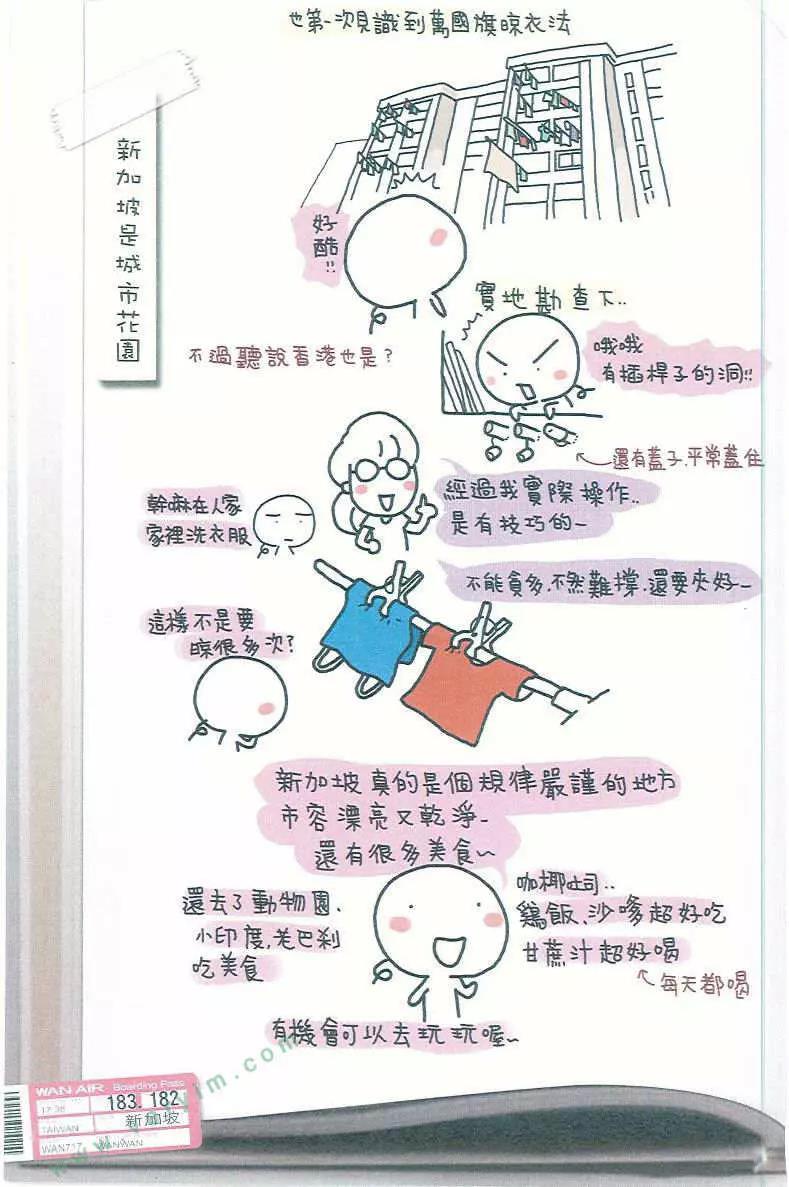 也第一次見識到萬國旗晾衣法
新加坡是城市花園
好
酷!!
不過聽說香港也是?
實地勘查下..
哦哦
有插桿子的洞!!
還有蓋子.平常蓋住
經過我實際操作..
是有技巧的~
幹麻在人家
家裡洗衣服
不能貪多.不然難撐.還要夾好~
這樣不是要
晾很多次?
新加坡真的是個規律嚴謹的地方
市容漂亮又乾淨~
還有很多美食~
還去了動物園、
小印度,老巴剎
吃美食
咖椰吐司..
鷄飯、沙嗲超好吃
甘蔗汁超好喝
每天都喝
有機會可以去玩玩喔~
WAN AIR Boarding Pass
183 182
TAIWAN
新加坡
WAN717 WANWAN